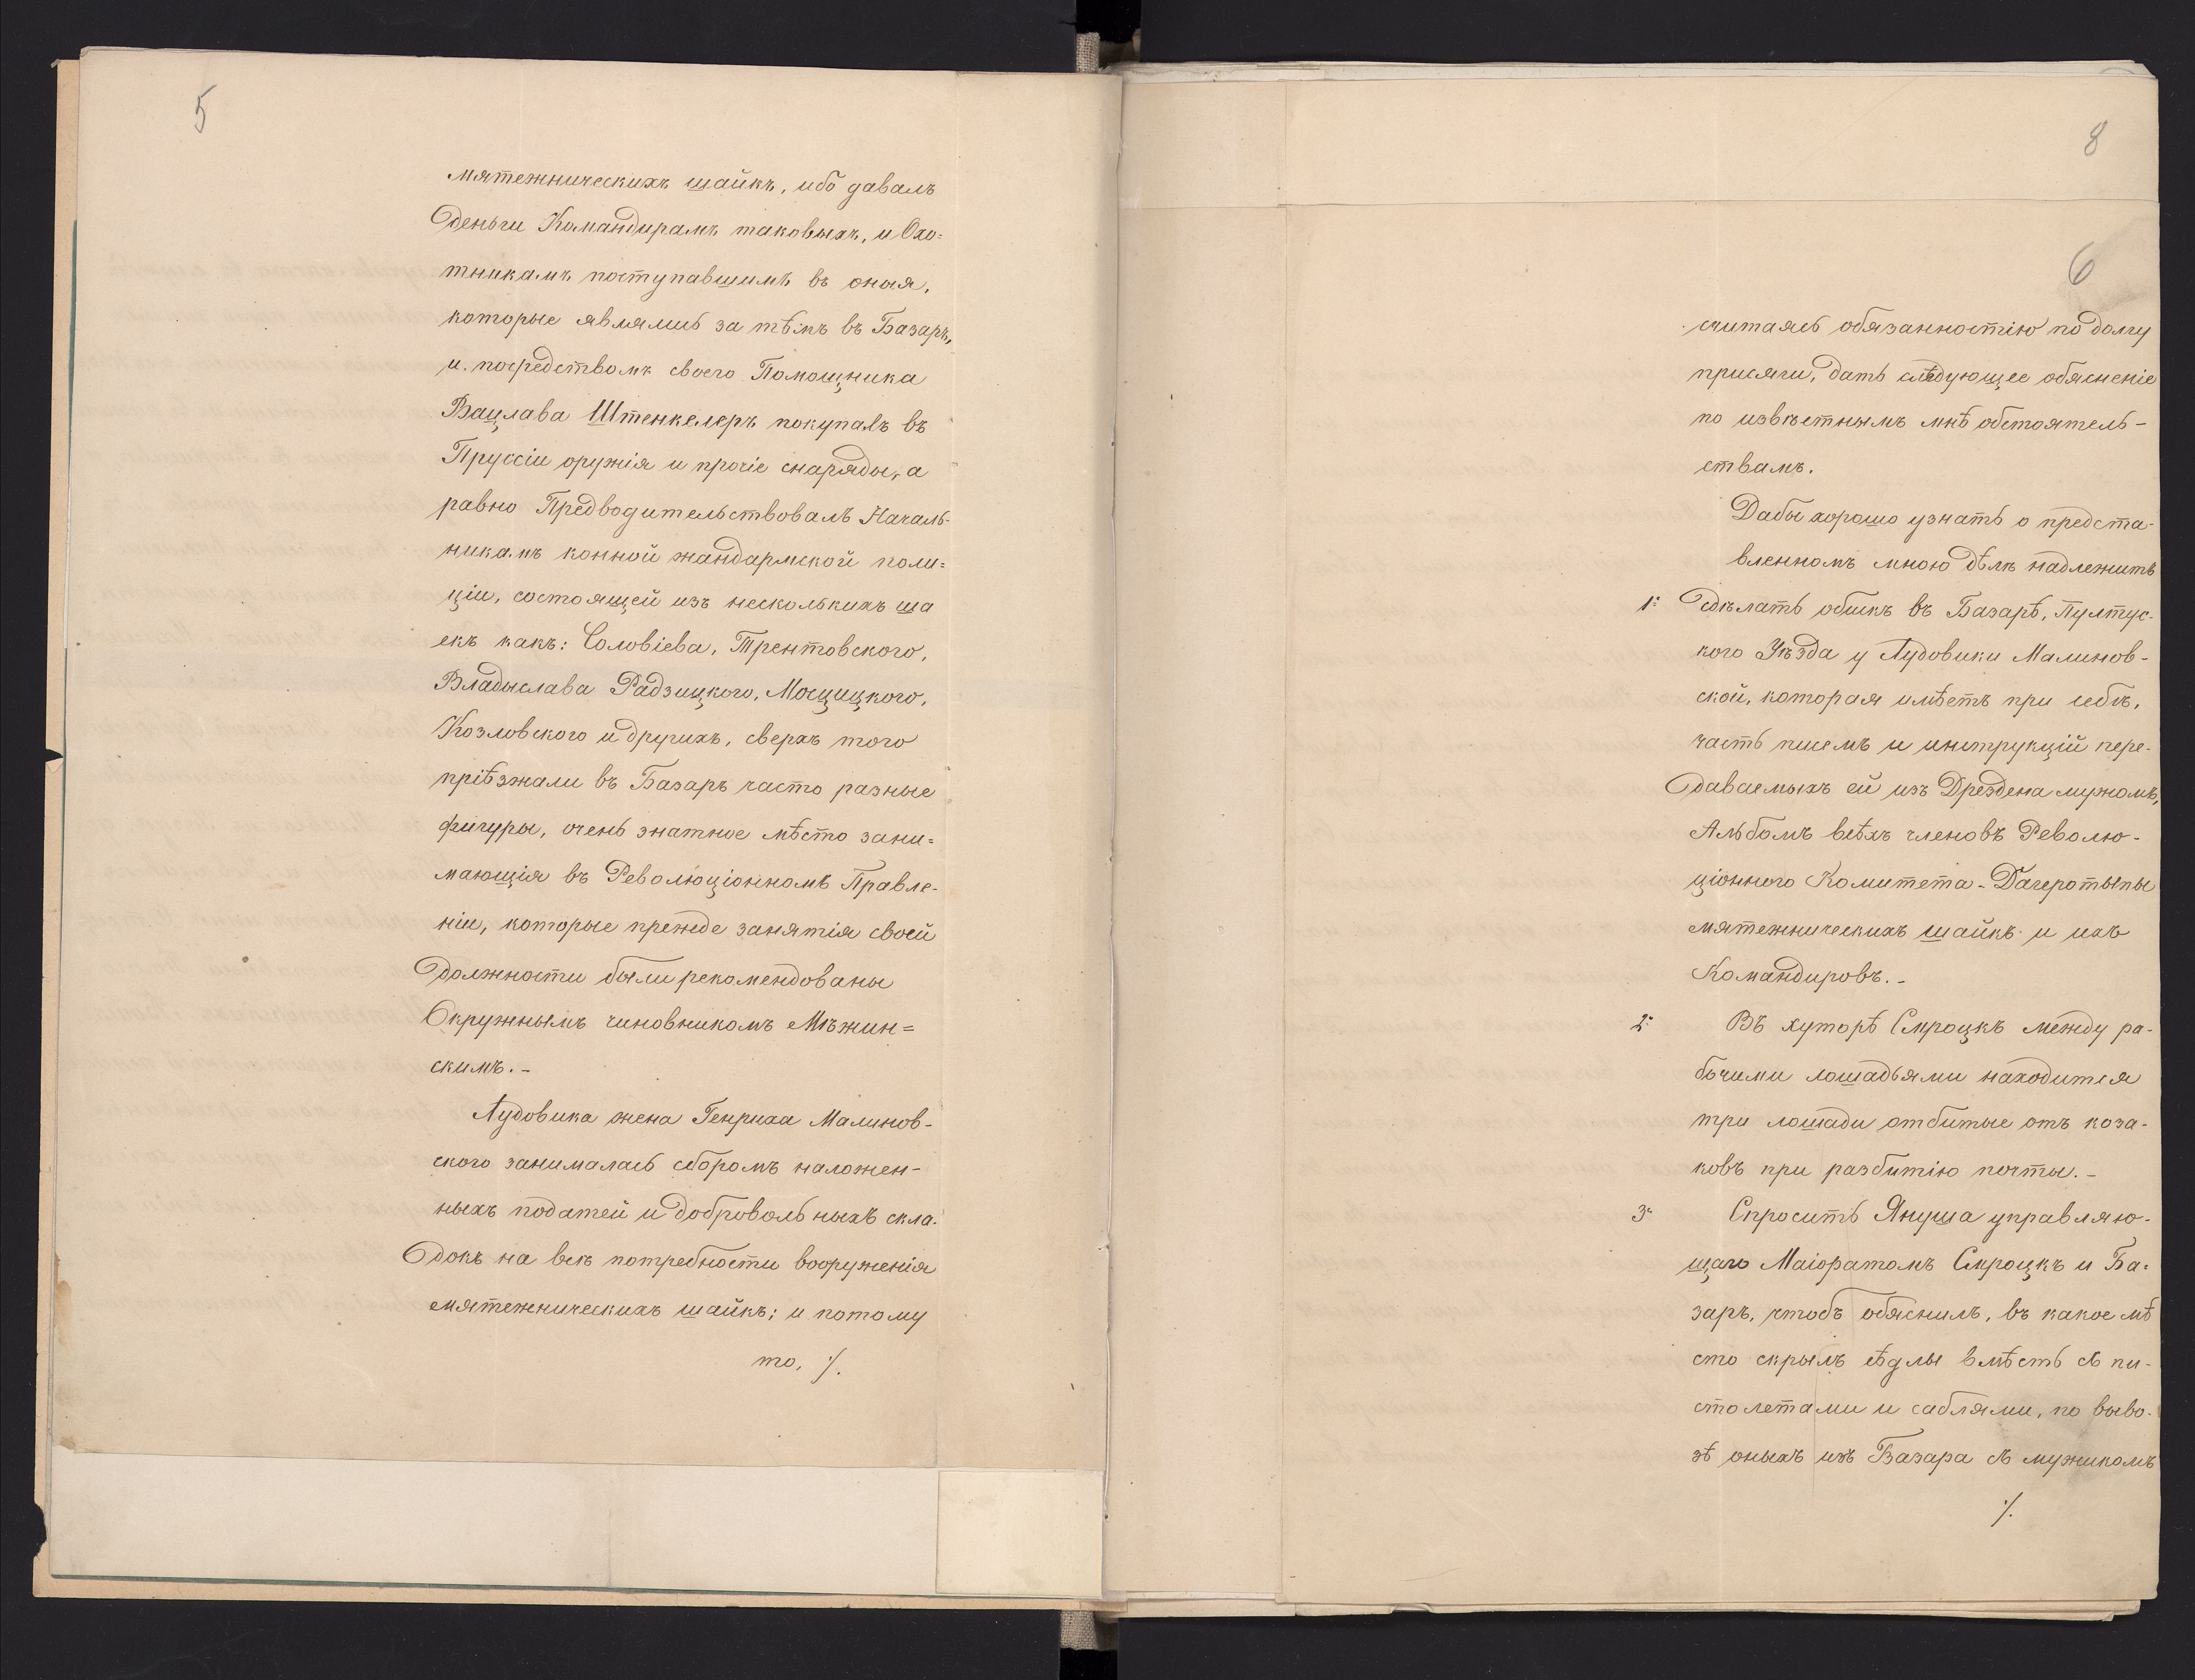 5
мятежническихъ шайкъ, ибо давалъ
деньги Командирамъ таковыхъ, и Охо=
тникамъ поступавшимъ въ оныя,
которые являлись за тѣмъ въ Базаръ,
и посредствомъ своего Помощника
Вацлава Штенкелеръ покупалъ въ
Пруссіи оружія и прочіе снаряды, а
равно Предводительствовалъ Началь-
никамъ конной жандармской поли=
ціи, состоящей изъ несколькихъ ша
екъ какъ: Соловіева, Трентовского,
Владыслава Радзицкого, Мосцицкого,
Козловского и другихъ, сверхъ того
пріѣзжали въ Базаръ часто разные
фигуры, очень знатное мѣсто зани=
мающія въ Революціонномъ Правле-
ніи, которые прежде занятія своей
должности были рекомендованы
Окружнымъ чиновникомъ Мѣжин=
скимъ.-
Лудовика жена Генриха Малинов-
ского занималась сборомъ наложен-
ныхъ податей и добровольныхъ скла-
докъ на всѣ потребности вооруженія
мятежническихъ шайкъ; и потому
то, ·/.
8
6
считаясь обязанностію по долгу
присяги, дать слѣдующее обясненіе
по извѣстнымъ мнѣ обстоятель-
ствамъ.
Дабы хорошо узнать о предста-
вленномъ мною дѣлѣ надлежитъ
1. Сдѣлать обискъ въ Базарѣ, Пултус-
кого Уѣзда у Лудовики Малинов-
ской, которая имѣетъ при себѣ,
часть писемъ и инструкцій пере-
даваемыхъ ей изъ Дрездена мужомъ,
Альбомъ всѣхъ членовъ Револю-
ціонного Комитета - Дагеротыпы
мятежническихъ шайкъ и ихъ
Командировъ.-
2. Въ хуторѣ Смроцкъ между ра-
бочими лошадьями находится
три лошади отбитые отъ коза-
ковъ при разбитію почты.-
3. Спросить Януша управляю-
щаго Маіоратомъ Смроцкъ и Ба=
заръ, чтобъ обяснилъ, въ какое мѣ
сто скрылъ сѣдлы вмѣсть съ пи-
столетами и саблями, по выво-
зѣ оныхъ изъ Базара съ мужикомъ
·/.